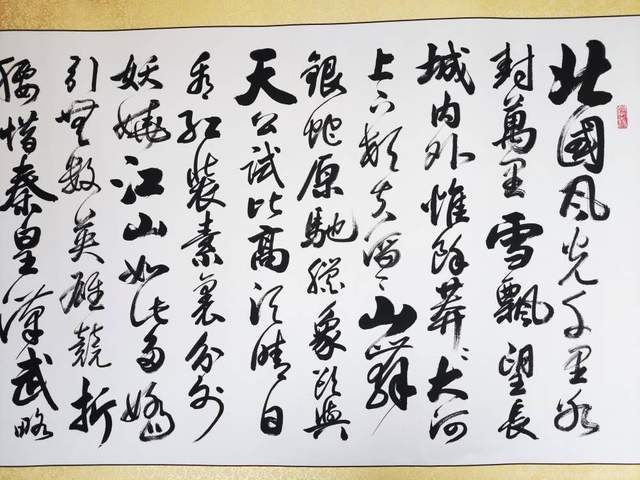 北國风光千里冰
封萬里雪飄望長
城内外惟餘莽々大河
上下頓失滔々山舞
銀蛇原馳蠟象欲與
天公試比高須晴日
看红裝素裹分外
妖嬈江山如此多嬌
引無數英雄競折
腰惜秦皇漢武略